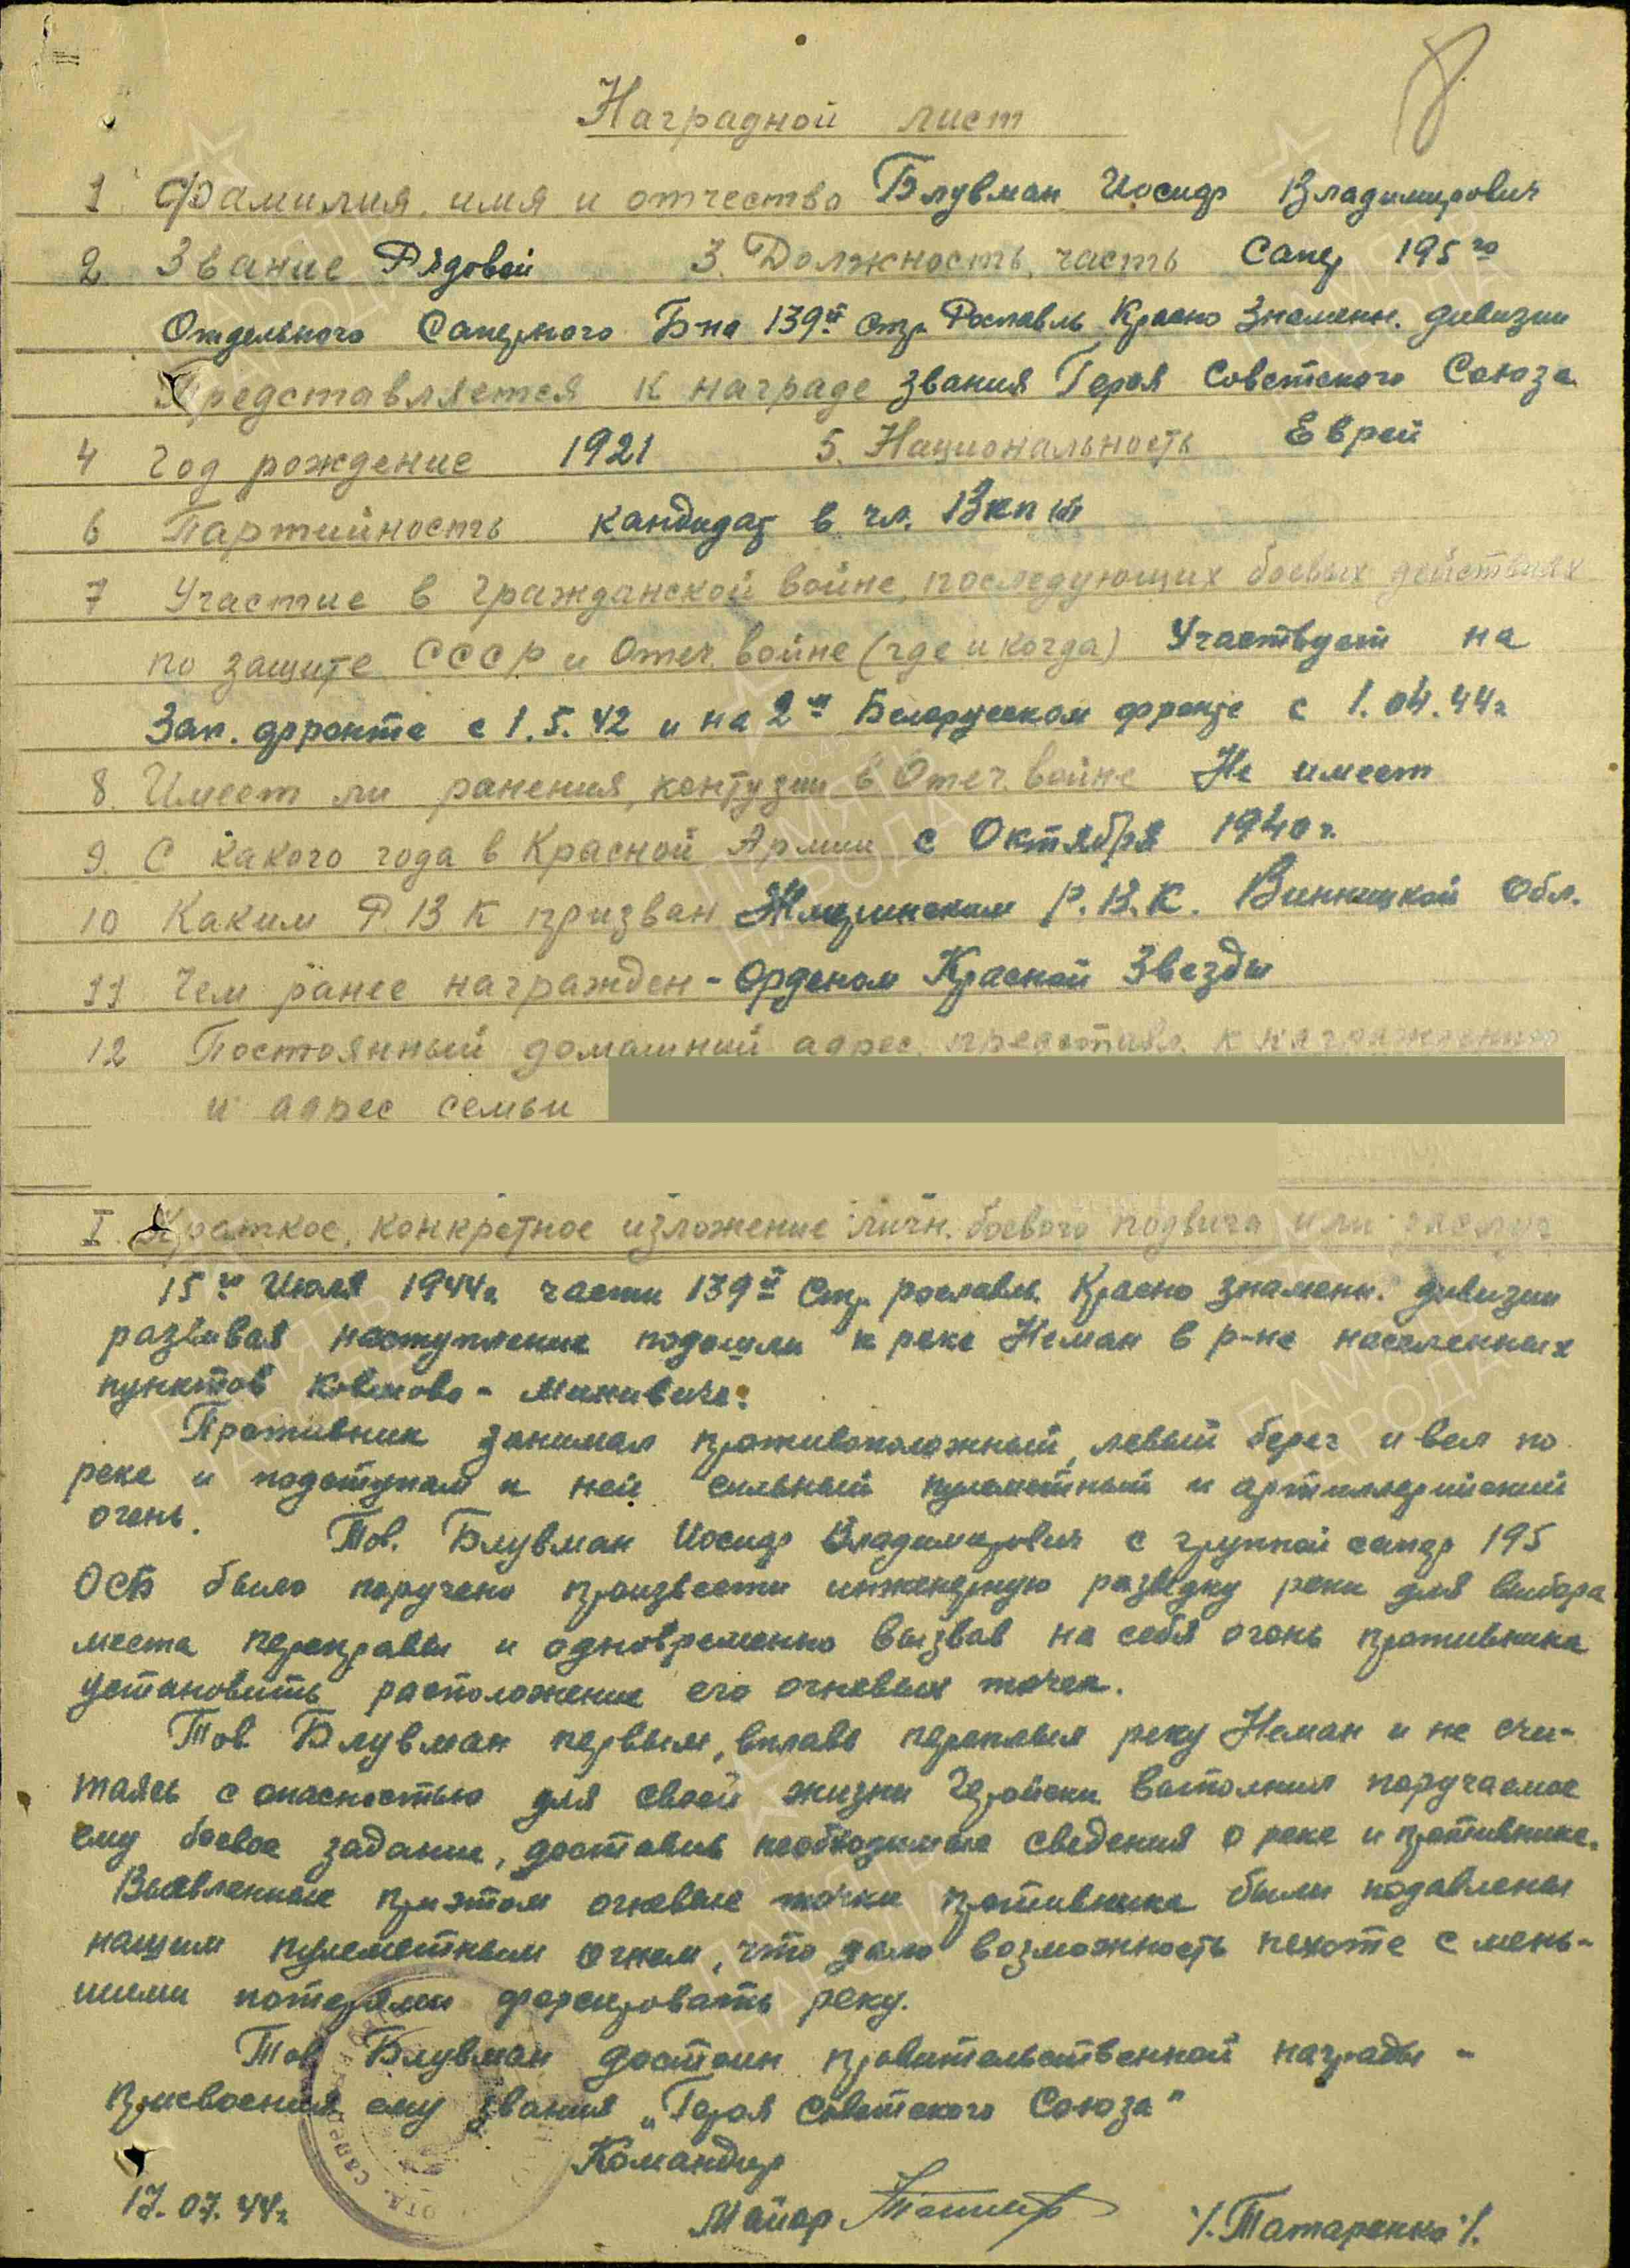 Наградной лист
1 Фамилия, имя и отчество Блувман Иосиф Владимирович
2 Звание Рядовой 3. Должность, часть Сапер 195го
Отдельного Саперного Б-на 139й стр. Рославль Красно Знаменн. дивизии
Представляется к награде звания Героя Советского Союза
4 Год рождение 1921 5. Национальность Еврей
6 Партийность кандидат в чл. ВКП(б)
7 Участие в гражданской войне, последующих боевых действиях
по защите СССР и Отеч. войне (где и когда) Участвует на
Зап. фронте с 1.5.42 и на 2м Белорусском фронте с 1.04.44г
8. Имеет ли ранения, контузии в Отеч. войне Не имеет
9. С какого года в Красной Армии с Октября 1940г.
10 Каким РВК призван Жмеринским Р.В.К. Винницкой Обл.
11 Чем ранее награжден - Орденом Красной Звезды
12 Постоянный домашний адрес представл. к награждению
и адрес семьи
I. Краткое, конкретное изложение личн. боевого подвига или заслуг
15го Июля 1944г. части 139й Стр. рославль. Красно знаменн. дивизии
развивая наступление подошли к реке Неман в р-не населенных
пунктов
Противник занимал противоположный, левый берег и вел по
реке и подступам к ней сильный пулеметный и артиллерийский
огень.
Тов. Блувман Иосиф Владимирович с группой сапер 195
ОСБ было поручено произвести инженерную разведку реки для выбора
места переправы и одновременно вызвав на себя огонь противника
установить расположение его огневых точек.
Тов. Блувман первым, вплавь переплыл реку Неман и не счи-
таясь с опасностью для своей жизни Геройски выполнил поручаемое
ему боевое задание, доставив необходимые сведения о реке и противнике.
Выявленные при этом огневые точки противника были подавлены
нашим пулеметным огнем, что дало возможность пехоте с мень-
шими потерями форсировать реку.
Тов Блувман достоин правительственной награды -
присвоения ему звания „Героя Советского Союза"
Командир
17.07.44г. Майор /.Татаренко/.